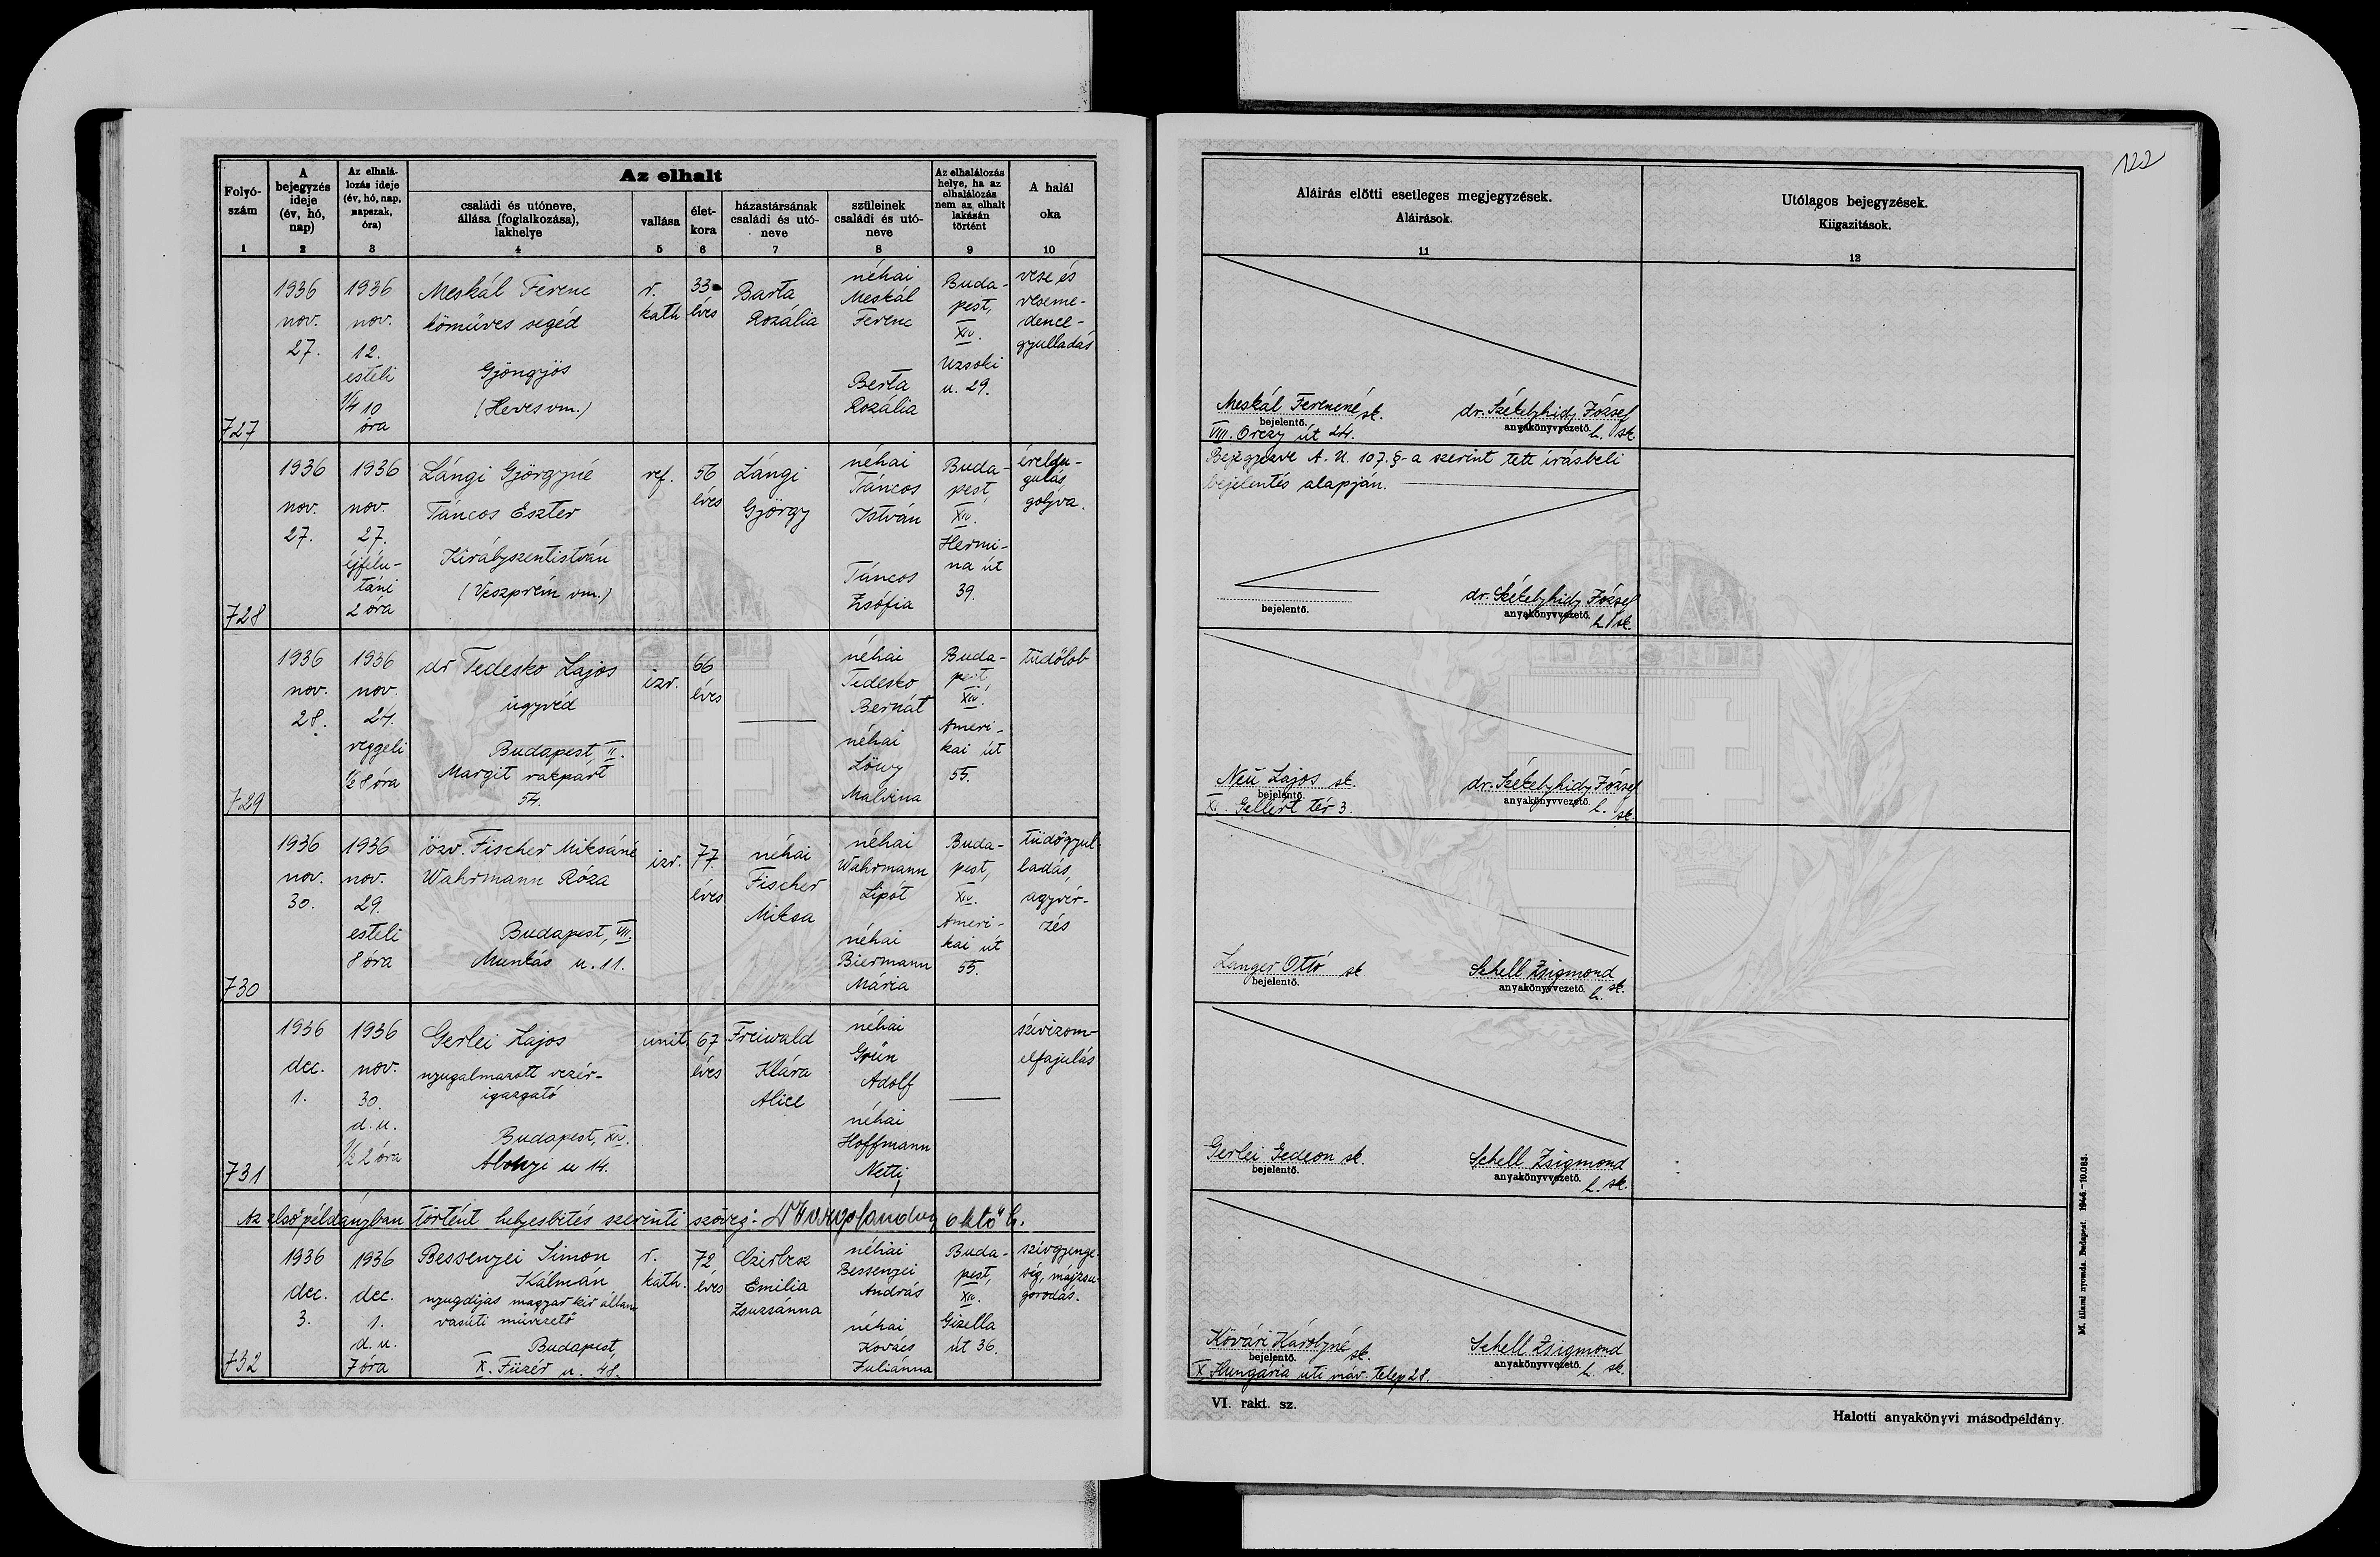 122
Folyó-
szám
1
A
bejegyzés
ideje
(év, hó,
nap)
2
Az elhalá-
lozás ideje
(év, hó, nap,
napszak,
óra)
3
Az elhalt
családi és utóneve,
állása (foglalkozása),
lakhelye
4
vallása
5
élet-
kora
6
házastársának
családi és utó-
neve
7
szüleinek
családi és utó-
neve
8
Az elhalálozás
helye, ha az
elhalálozás
nem az elhalt
lakásán
történt
9
A halál
oka
10
Aláírás előtti esetleges megjegyzések.
Aláírások.
11
Utólagos bejegyzések.
Kiigazítások.
12
727
1936
nov.
27.
1936
nov.
12.
esteli
1/4 10
óra
Meskál Ferenc
kőműves segéd
Gyöngyös
(Heves vm.)
r.
kath
33
éves
Barta
Rozália
néhai
Meskál
Ferenc
Berta
Rozália
Buda-
pest,
XIV.
Uzsoki
u. 29.
vese és
veseme-
dence-
gyulladás
Meskál Ferencné sk.
bejelentő.
VIII. Orczy út 24.
dr. Székelyhidy József
anyakönyvvezető.
h. sk.
728
1936
nov.
27.
1936
nov.
27.
éjfélu-
táni
2 óra
Lángi Györgyné
Táncos Eszter
Királyszentistván
(Veszprém vm.)
ref.
56
éves
Lángi
György
néhai
Táncos
István
Táncos
Zsófia
Buda-
pest,
XIV.
Hermi-
na út
39.
éreldu-
gulás,
golyva.
Bejegyezve A. U. 107. §-a szerint tett írásbeli
bejelentés alapján.
bejelentő.
dr. Székelyhidy József
anyakönyvvezető.
h. sk.
729
1936
nov.
28.
1936
nov.
24.
reggeli
1/2 8 óra
dr Tedesko Lajos
ügyvéd
Budapest, II.
Margit rakpart
54.
izr.
66
éves
néhai
Tedesko
Bernát
néhai
Löwy
Malvina
Buda-
pest,
XIV.
Ameri-
kai út
55.
tüdőlob
Neu Lajos sk.
bejelentő.
XI. Gellért tér 3.
dr. Székelyhidy József
anyakönyvvezető.
h. sk.
730
1936
nov.
30.
1936
nov.
29.
esteli
8 óra
özv. Fischer Miksáné
Wahrmann Róza
Budapest, VII.
Munkás u. 11.
izr.
77
éves
néhai
Fischer
Miksa
néhai
Wahrmann
Lipót
néhai
Biermann
Mária
Buda-
pest,
XIV.
Ameri-
kai út
55.
tüdőgyul-
ladás,
agyvér-
zés
Langer Ottó sk
bejelentő.
Schell Zsigmond
anyakönyvvezető.
h. sk.
731
1936
dec.
1.
1936
nov.
30.
d. u.
1/2 2 óra
Gerlei Lajos
nyugalmazott vezér-
igazgató
Budapest, XIV.
Abonyi u 14.
unit.
67
éves
Freiwald
Klára
Alice
néhai
Grün
Adolf
néhai
Hoffmann
Netti
szívizom-
elfajulás
Gerlei Gedeon sk.
bejelentő.
Schell Zsigmond
anyakönyvvezető.
h. sk.
Az első példányban történt helyesbítés szerinti szöveg:
732
1936
dec.
3.
1936
dec.
1.
d. u.
7 óra
Bessenyei Simon
Kálmán
nyugdíjas magyar kir állam
vasúti művezető
Budapest,
X. Füzér u. 48.
r.
kath.
72
éves
Czirbesz
Emilia
Zsuzsánna
néhai
Bessenyei
András
néhai
Kovács
Juliánna
Buda-
pest,
XIV.
Gizella
út 36.
szívgyenge-
ség, májzsu-
gorodás.
Kővári Károlyné sk.
bejelentő.
X. Hungária uti máv. telep 28.
Schell Zsigmond
anyakönyvvezető.
h. sk.
VI. rakt. sz.
Halotti anyakönyvi másodpéldány.
M. állami nyomda. Budapest. 1946.—10.085.